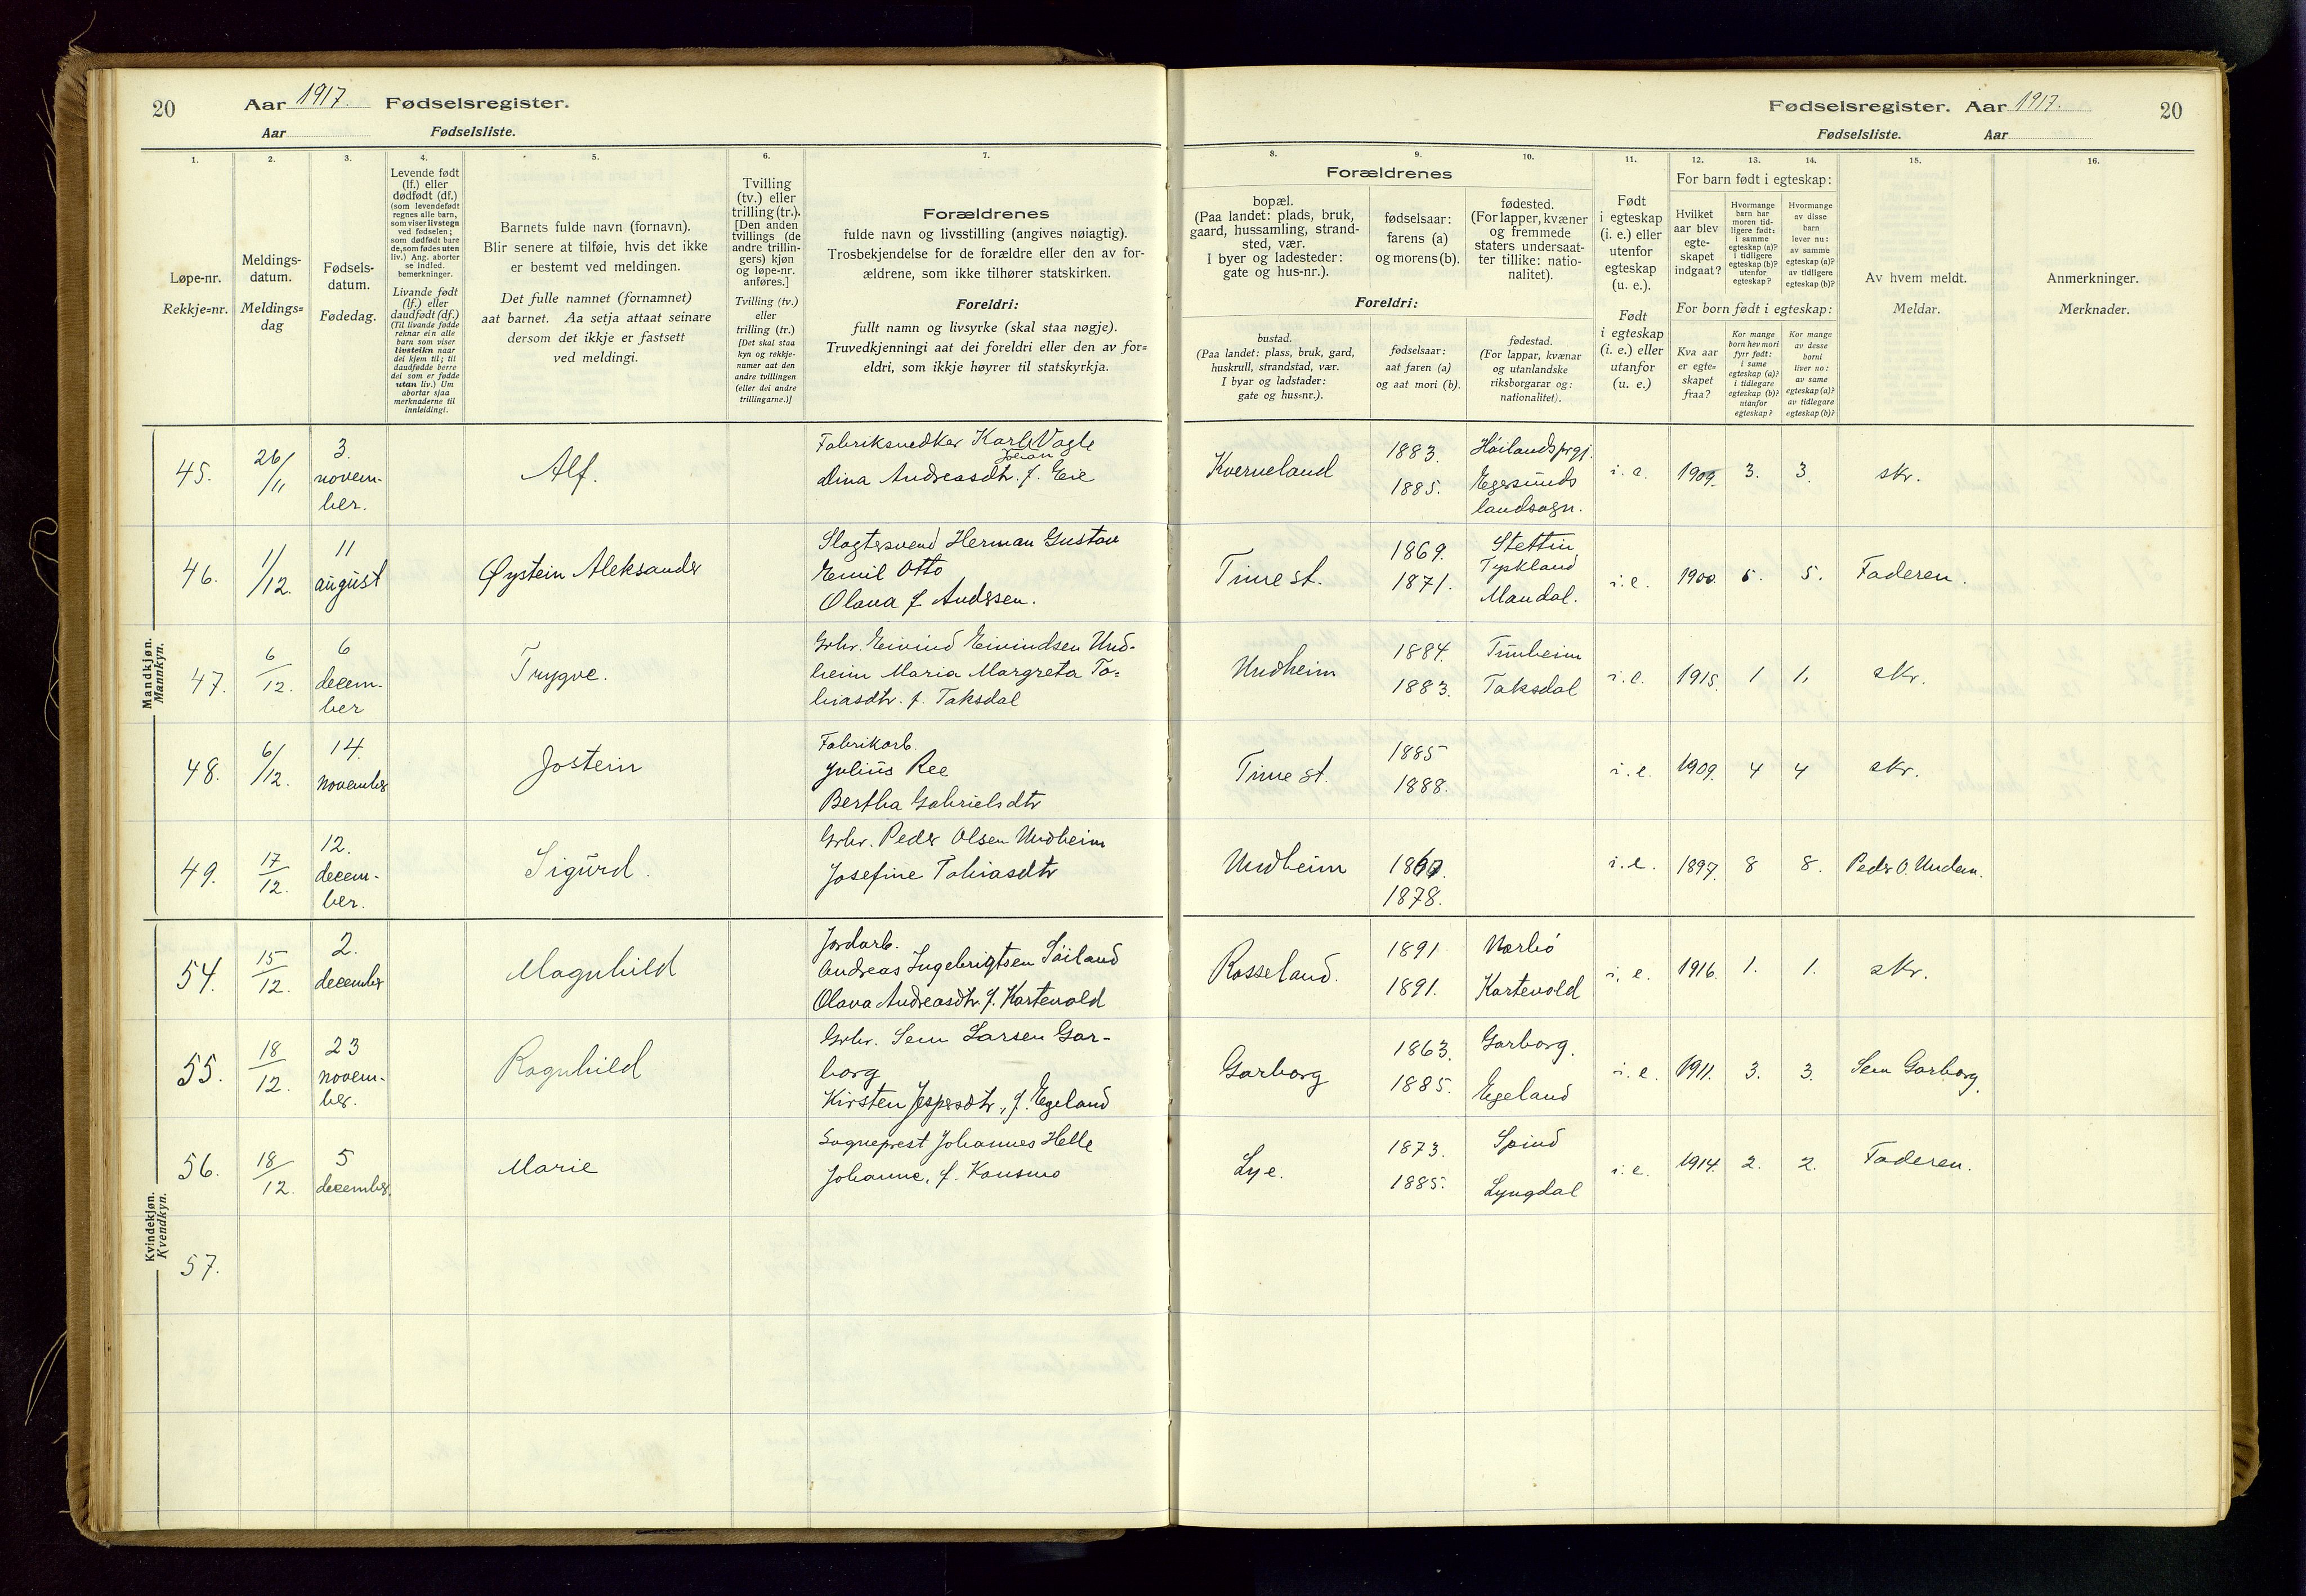 20
Aar 1917. Fødselsregister.
Aar Fødselsliste.
Fødselsregister. Aar 1917.
20
Fødselsliste. Aar
1.
2.
3.
4.
5.
6.
7.
8.
9.
10.
11.
12.
13.
14.
15.
16.
Løpe-nr.
Rekkje=nr.
Meldings-
datum.
Meldings=
dag
Fødsels-
datum.
Fødedag.
Levende født
(lf.) eller
dødfødt (df.)
(som levendefødt
regnes alle barn,
som viser livstegn
ved fødselen;
som dødfødt bare
de, som fødes uten
liv.) Ang. aborter
se indled.
bemerkninger.
Livande født
(lf.) eller
daudfødt (df.)
(Til livande fødde
reknar ein alle
barn som viser
livsteikn naar
dei kjem til; til
daudfødde berre
dei som er fødde
utan liv.) Um
abortar sjaa
merknaderne til
innleidingi.
Barnets fulde navn (fornavn).
Blir senere at tilføie, hvis det ikke
er bestemt ved meldingen.
Det fulle namnet (fornamnet)
aat barnet. Aa setja attaat seinare
dersom det ikkje er fastsett
ved meldingi.
Tvilling
(tv.) eller
trilling (tr.).
[Den anden
tvillings (de
andre trillin-
gers) kjøn
og løpe-nr.
anføres.]
Tvilling (tv.)
eller
trilling (tr.)
[Det skal staa
kyn og rekkje-
numer aat den
andre tvillingen
(eller dei andre
trillingarne.)]
Forældrenes
fulde navn og livsstilling (angives nøiagtig).
Trosbekjendelse for de forældre eller den av for-
ældrene, som ikke tilhører statskirken.
Foreldri:
fullt namn og livsyrke (skal staa nøgje).
Truvedkjenningi aat dei foreldri eller den av for=
eldri, som ikkje høyrer til statskyrkja.
Forældrenes
bopæl.
(Paa landet: plads, bruk,
gaard, hussamling, strand-
sted, vær.
I byer og ladesteder:
gate og hus-nr.).
fødselsaar:
farens (a)
og morens (b).
fødested.
(For lapper, kvæner
og fremmede
staters undersaat-
ter tillike: natio-
nalitet).
Foreldri:
bustad.
(Paa landet: plass, bruk, gard,
huskrull, strandstad, vær.
I byar og ladstader:
gate og hus=nr.).
fødselsaar:
aat faren (a)
og aat mori (b).
fødestad.
(For lappar, kvænar
og utanlandske
riksborgarar og:
nationalitet).
Født
i egteskap
(i. e.) eller
utenfor
egteskap
(u. e.).
Født
i egteskap
(i. e.) eller
utanfor
(u. e.)
For barn født i egteskap:
Hvilket
aar blev
egte-
skapet
indgaat?
Hvormange
barn har
moren tid-
ligere født:
i samme
egteskap (a)?
i tidligere
egteskap (b)?
utenfor
egteskap?
Hvormange
av disse
barn
lever nu:
av samme
egteskap (a)?
av tidligere
egteskap (b)?
For born født i egteskap:
Kva aar
er egte=
skapet
fraa?
Kor mange
born hev mori
fyrr født:
i same
egteskap (a)?
i tidlegare
egteskap (b)?
utanfor
egteskap?
Kor mange
av desse
borni
liver no:
av same
egteskap (a)?
av tidlegare
egteskap (b)?
Av hvem meldt.
Meldar.
Anmerkninger.
Merknader.
Mandkjøn.
Mannkyn.
45. 26/11 3. novem-
ber. Alf. Fabriksnedker Karl Vagle
Johan
Dina Andreasdtr. f. Eie
Kverneland 1883. Höilandsprgj.
1885. Egersunds
landsogn.
i. e. 1909. 3. 3. skr.
46. 1/12. 11
august Øystein Aleksander Slagtersvend Herman Gustav
Emil Otto
Olava f. Andersen.
Time st. 1869. Stettin
Tyskland
1871. Mandal.
i. e. 1900. 5. 5. Faderen.
47. 6/12. 6
decem-
ber Trygve. Grbr. Eivind Eivindsen Und-
heim Maria Margreta To=
biasdtr. f. Taksdal
Undheim 1884. Tunheim
1883. Taksdal
i. e. 1915. 1 1. skr.
48. 6/12. 14.
november Jostein Fabrikarb.
Julius Ree
Bertha Gabrielsdtr
Time st. 1885
1888.
i. e. 1909. 4 4 skr.
49. 17/12. 12.
decem-
ber. Sigurd. Grbr. Peder Olsen Undheim
Josefine Tobiasdtr
Undheim 1867.
1878.
i. e. 1897. 8 8. Peder O. Undem.
Kvindekjøn.
Kvendkyn.
54. 15/12. 2.
december Magnhild Jordarb.
Andreas Ingebrigtsen Söiland
Olava Andreasdtr. f. Kartevold
Rosseland. 1891 Nærbö
1891. Kartevold
i. e. 1916. 1. 1. skr.
55. 18/12. 23
novem-
ber. Ragnhild Grbr. Sem Larsen Gar-
borg
Kirsten Jespersdtr, f. Egeland
Garborg 1863. Garborg.
1885. Egeland
i. e. 1911. 3. 3. Sem Garborg.
56. 18/12. 5
december. Marie Sogneprest Johannes Helle
Johanne, f. Konsmo
Lye. 1873. Spind
1885. Lyngdal
i. e. 1914. 2. 2. Faderen.
57.